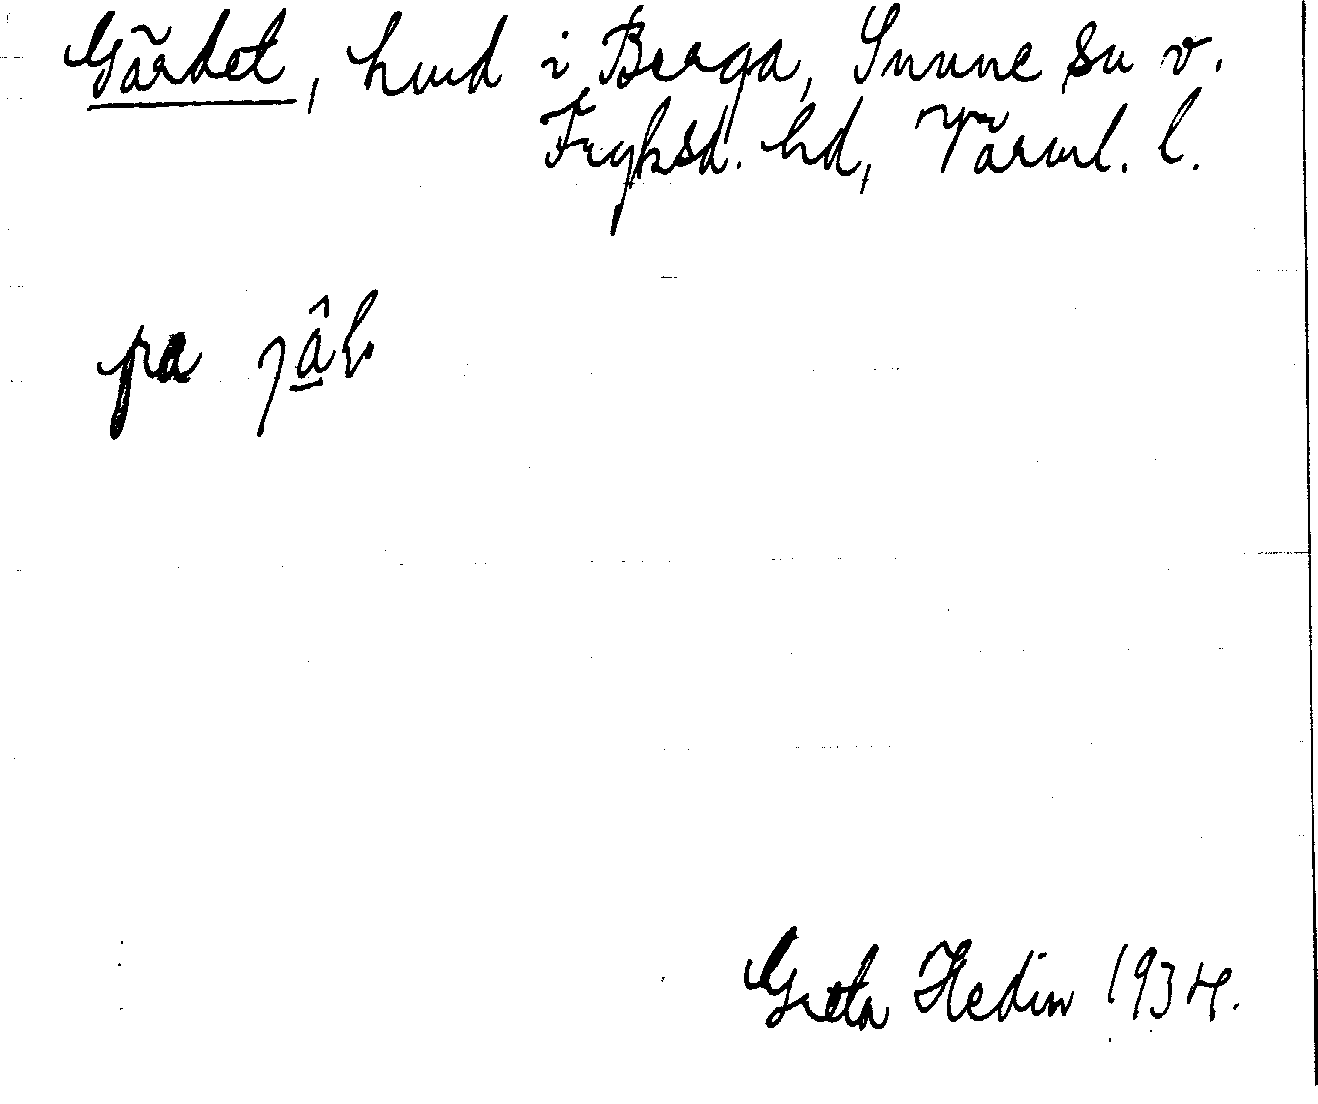 Gärdet, hmd i Berga, Sunne sn v.
Fryksd. hd, Värml. l.
pa
Greta Hedin 1934.